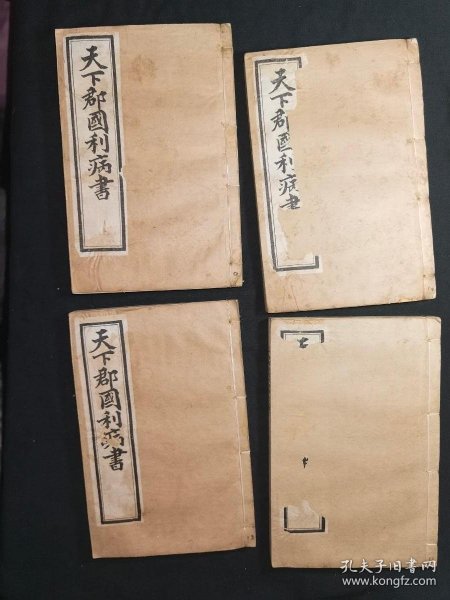 天下郡國利病書
天下郡國利病書
天下郡國利病書
孔夫子旧书网
www.kongfz.com